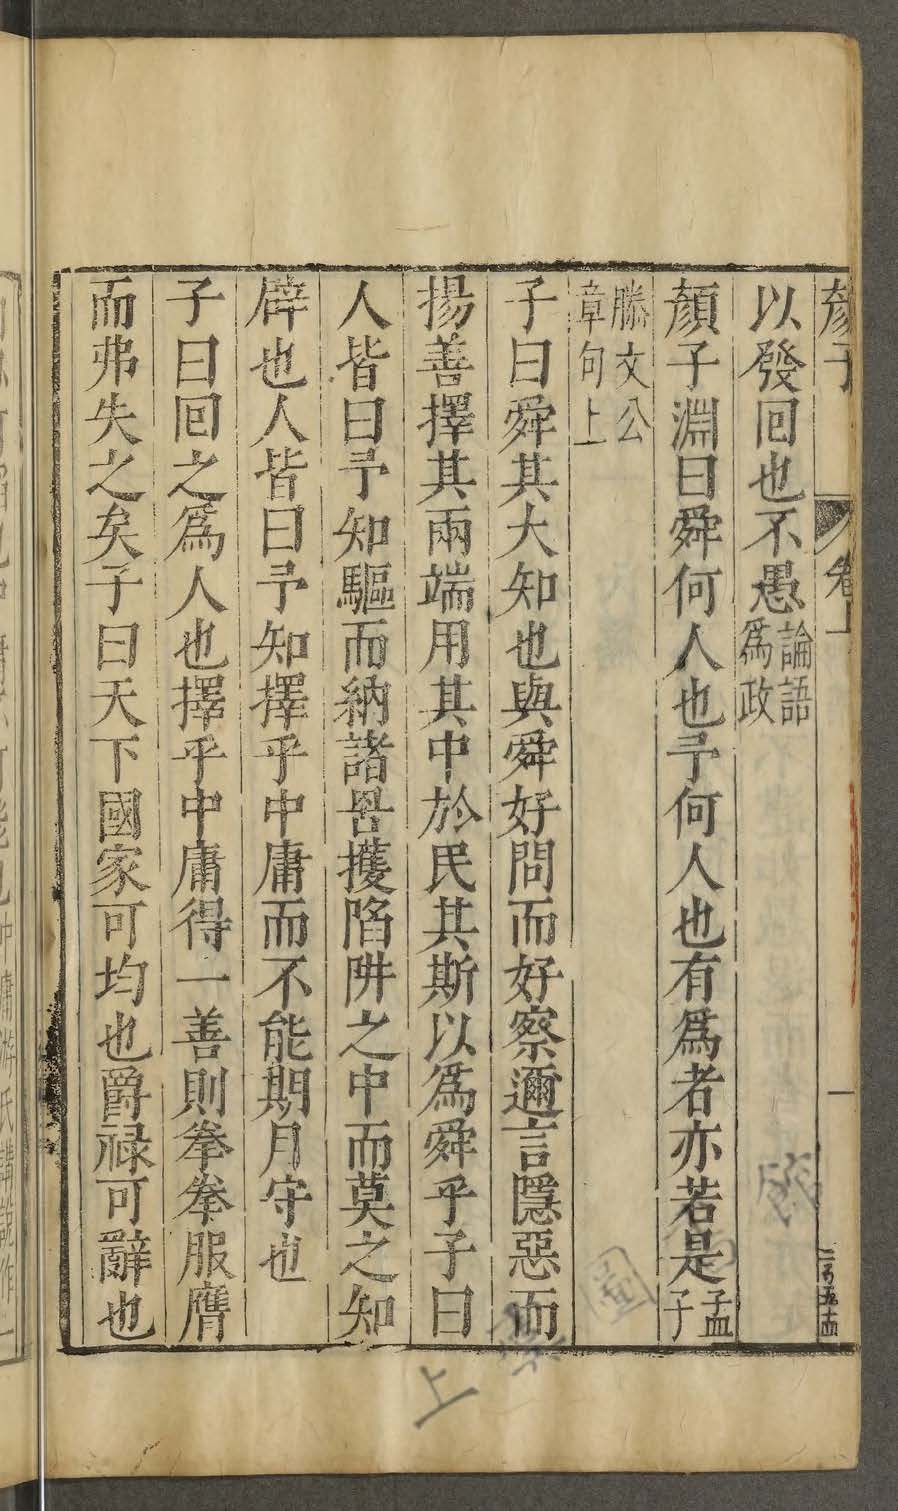 顏子 卷上 一
以發回也不愚論語爲政
顏子淵曰舜何人也予何人也有爲者亦若是孟子
滕文公章句上
子曰舜其大知也與舜好問而好察邇言隱惡而
揚善擇其兩端用其中於民其斯以爲舜乎子曰
人皆曰予知驅而納諸罟擭陷阱之中而莫之知
辟也人皆曰予知擇乎中庸而不能期月守也
子曰回之爲人也擇乎中庸得一善則拳拳服膺
而弗失之矣子曰天下國家可均也爵祿可辭也